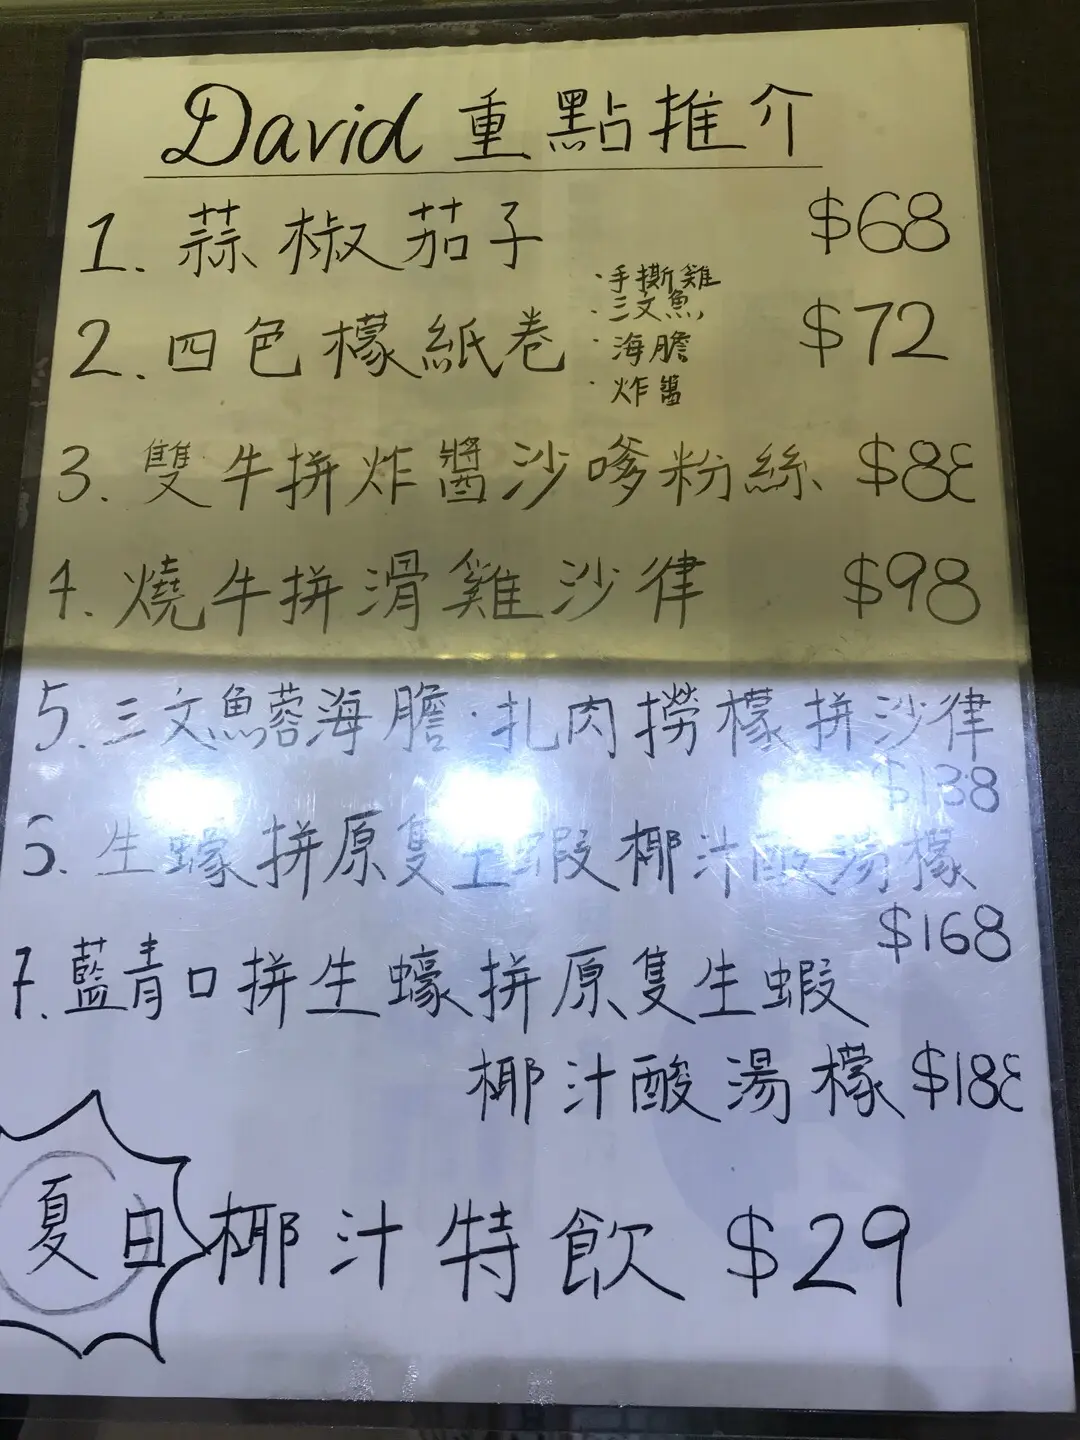 David 重點推介
1. 蒜椒茄子 $68
2. 四色檬紙卷 $72
· 手撕雞
· 三文魚
· 海膽
· 炸醬
3. 雙牛拼炸醬沙嗲粉絲 $88
4. 燒牛拼滑雞沙律 $98
5. 三文魚蓉海膽·扎肉撈檬拼沙律
$138
6. 生蠔拼原隻生蝦椰汁酸湯檬
$168
7. 藍青口拼生蠔拼原隻生蝦
椰汁酸湯檬 $188
夏日 椰汁特飲 $29